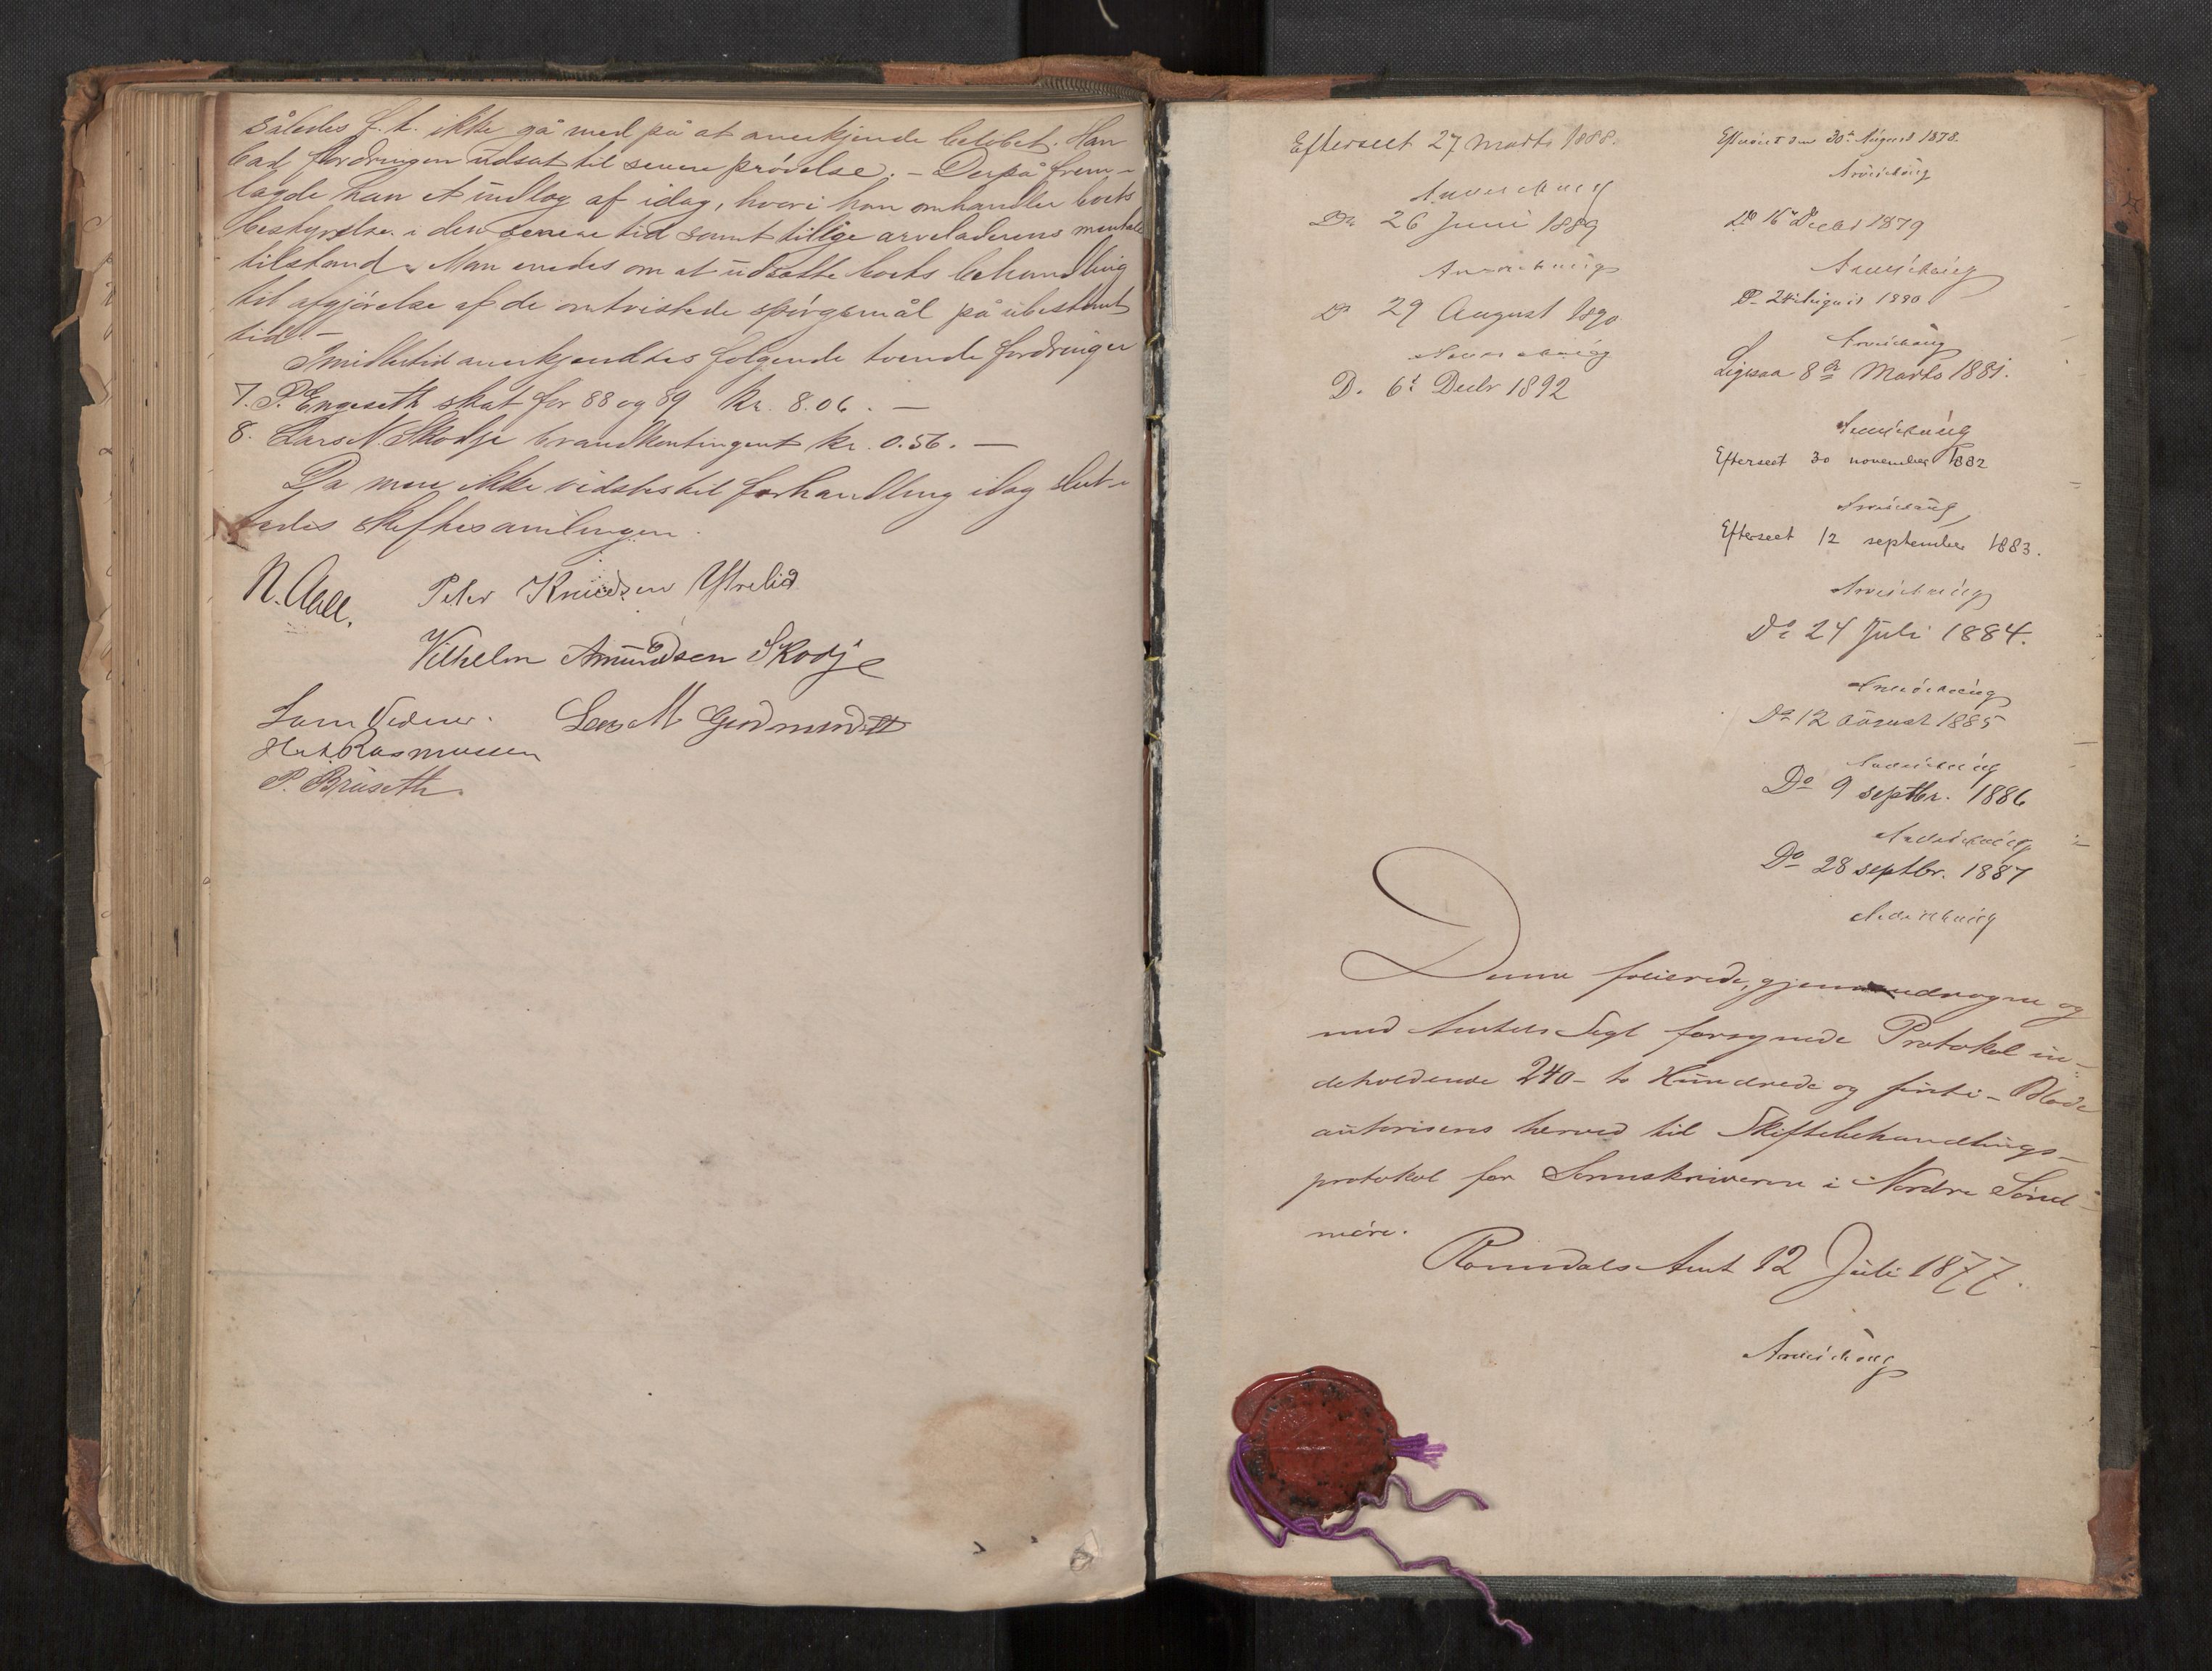 således f. t. ikke gå med på at anerkjende beløbet. Han
bad fordringen udsat til senere prøvelse. – Derpå frem-
lagde han et indlæg af idag, hvori han omhandler boets
bestyrelse i den senere tid samt tillige arveladerens mentale
tilstand. Man enedes om at udsætte boets behandling
til afgjørelse af de omtvistede spørgsmål på ubestemt
tid. –
Imidlertid anerkjendtes følgende tvende fordringer
7. P. Engeseth skat for 88 og 89 kr. 8.06. –
8. Lars N. Skodje brandkontingent kr. 0.56. –
Da mere ikke vidstes til forhandling idag slut-
tedes skiftesamlingen.
N. Aall.
Peter Knudsen Ytrelid
Vilhelm Amundsen Skodje
Lars M Gudmundset
Rasmussen
P. Bruseth
Efterseet 27 Marts 1888.
Do 26 Juni 1889
Do 29 August 1890
D. 6t Decbr 1892
Efterseet den 30te August 1878.
Do 16 Decbr 1879
Do 24 August 1880
Ligesaa 8de Marts 1881.
Efterseet 30 november 1882
Efterseet 12 september 1883.
Do 24 Juli 1884.
Do 12 august 1885
Do 9 septbr. 1886
Do 28 septbr. 1887
Denne folierede, gjennemdragne og
med Amtets Segl forsynede Protokol in-
deholdende 240 – to Hundrede og firti – Blade
autoriseres herved til Skiftebehandlings-
protokol for Sorenskriveren i Nordre Sønd-
møre.
Romsdals Amt 12 Juli 1877.